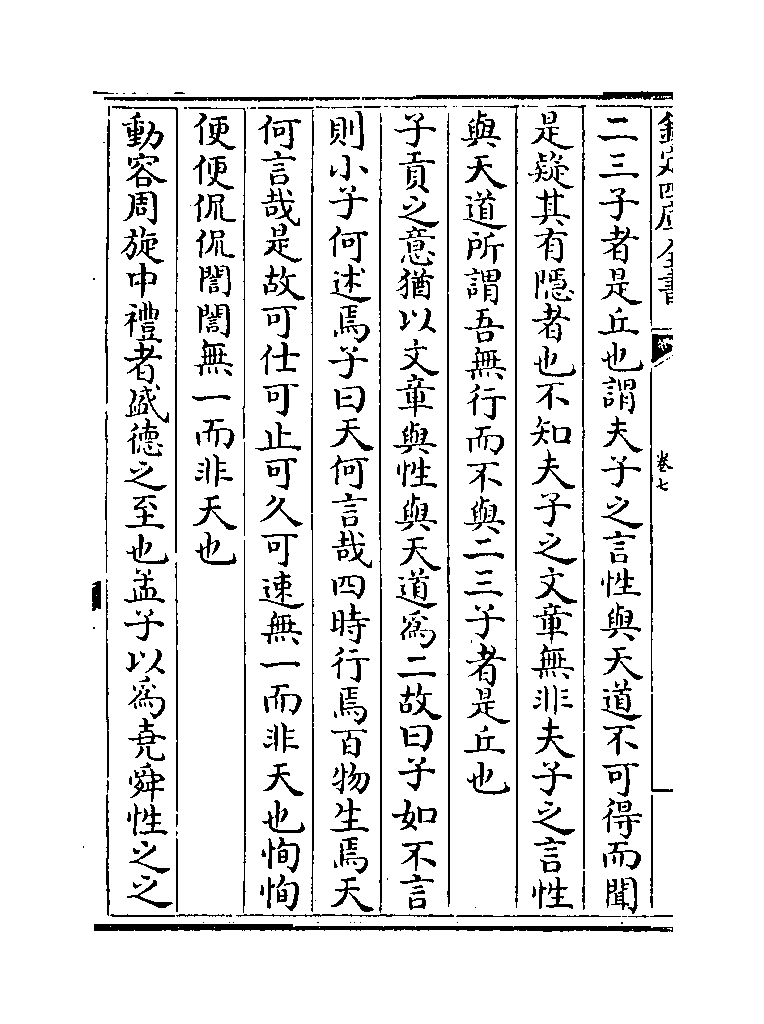 欽定四庫全書
卷七
二三子者是丘也謂夫子之言性與天道不可得而聞
是疑其有隱者也不知夫子之文章無非夫子之言性
與天道所謂吾無行而不與二三子者是丘也
子貢之意猶以文章與性與天道為二故曰子如不言
則小子何述焉子曰天何言哉四時行焉百物生焉天
何言哉是故可仕可止可久可速無一而非天也恂恂
便便侃侃誾誾無一而非天也
動容周旋中禮者盛德之至也孟子以為堯舜性之之